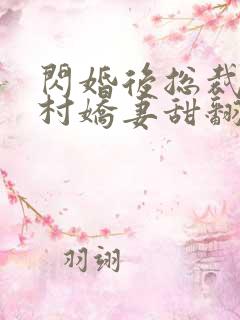 閃婚後总裁
村嬌妻甜翻
羽翊